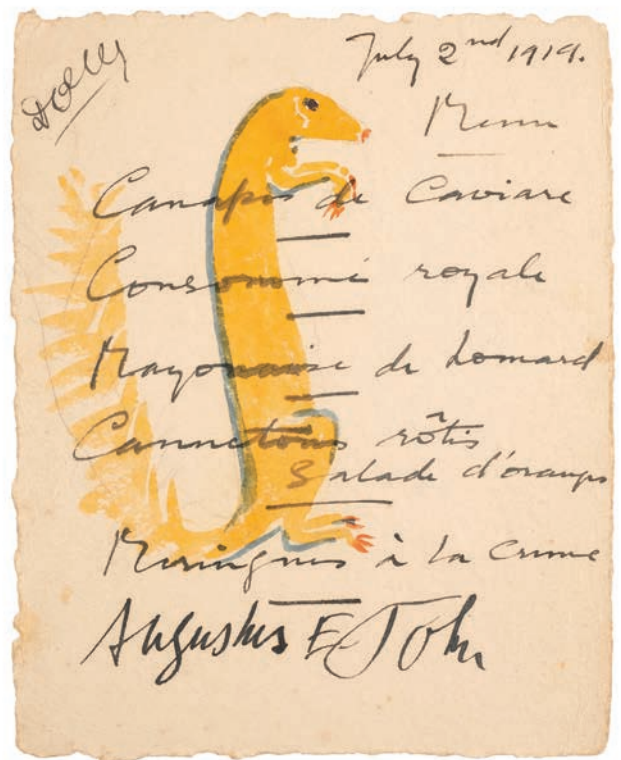 Dolly
July 2nd 1919.
Menu
Canapés de Caviare
Consommé royale
Mayonaise de homard
Cannetons rôtis
Salade d'oranges
Meringues à la Crème
Augustus E. John